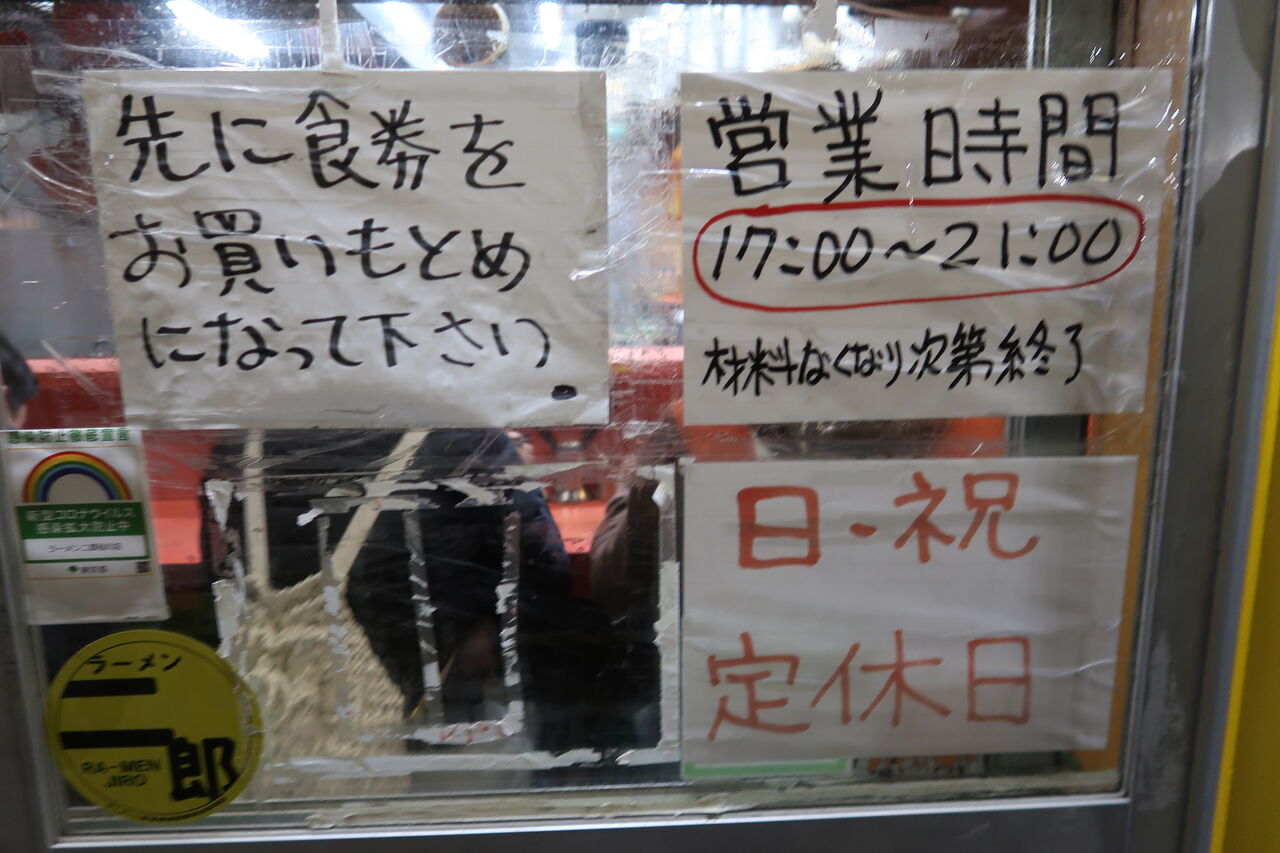 先に食券を
お買いもとめ
になって下さい。
営業時間
17:00〜21:00
材料なくなり次第終了
日・祝
定休日
感染防止徹底宣言
新型コロナウイルス
感染拡大防止中
東京都
ラーメン
二郎
RA-MEN
JIRO